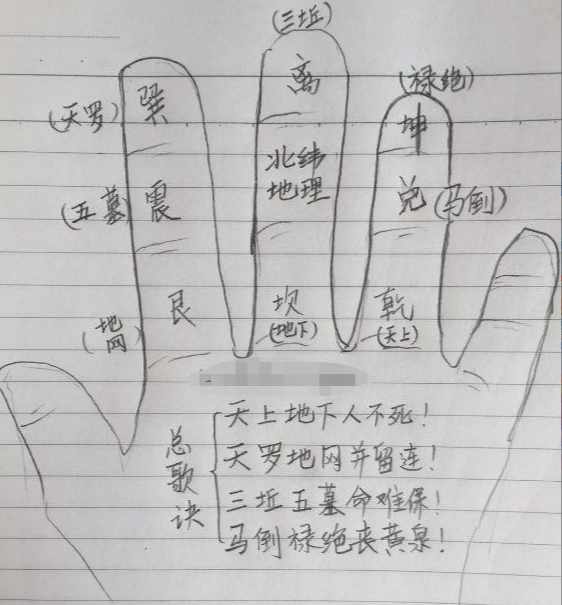 (三坵)
离
(禄绝)
巽
(天罗)
坤
北纬
地理
震
(五墓)
兑
(马倒)
艮
(地网)
坎
(地下)
乾
(天上)
总歌诀
天上地下人不死!
天罗地网并留连!
三坵五墓命难保!
马倒禄绝丧黄泉!